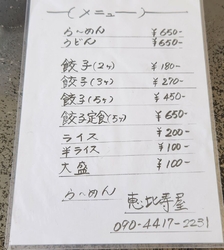 (メニュー)
らーめん ¥650-
うどん ¥650-
餃子(2ヶ) ¥180-
餃子(3ヶ) ¥270-
餃子(5ヶ) ¥450-
餃子定食(5ヶ) ¥650-
ライス ¥200-
半ライス ¥100-
大盛 ¥100-
らーめん 恵比寿屋
090-4417-2251